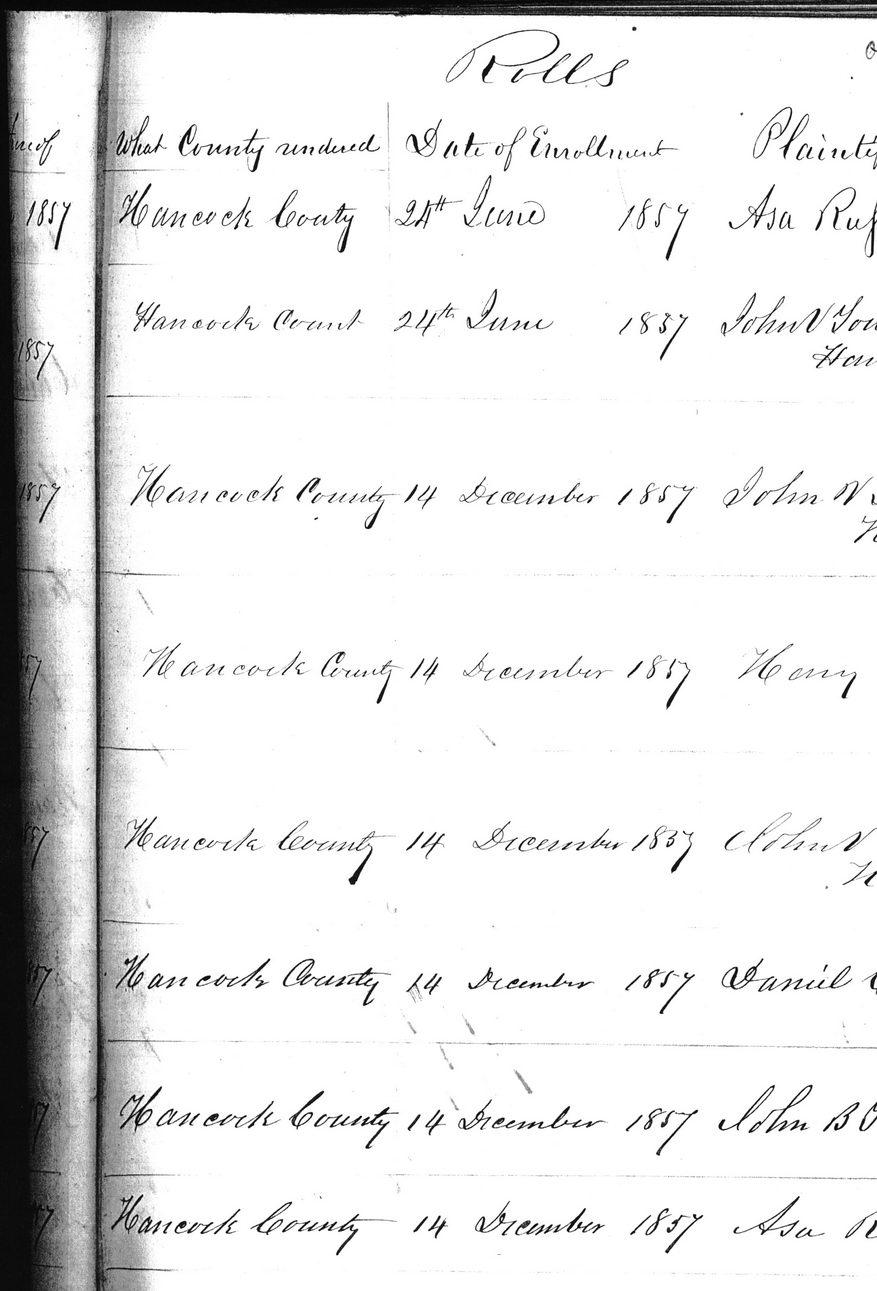 Rolls
What County rendered Date of Enrollment
1857 Hancock Couty 24th June 1857 Asa
Hancock Count 24th June 1857 John V
1857
1857 Hancock County 14 December 1857 John V
Hancock County 14 December 1857 Henry
Hancock County 14 December 1857 John V
Hancock County 14 December 1857 Daniel
Hancock County 14 December 1857 John B
Hancock County 14 December 1857 Asa R